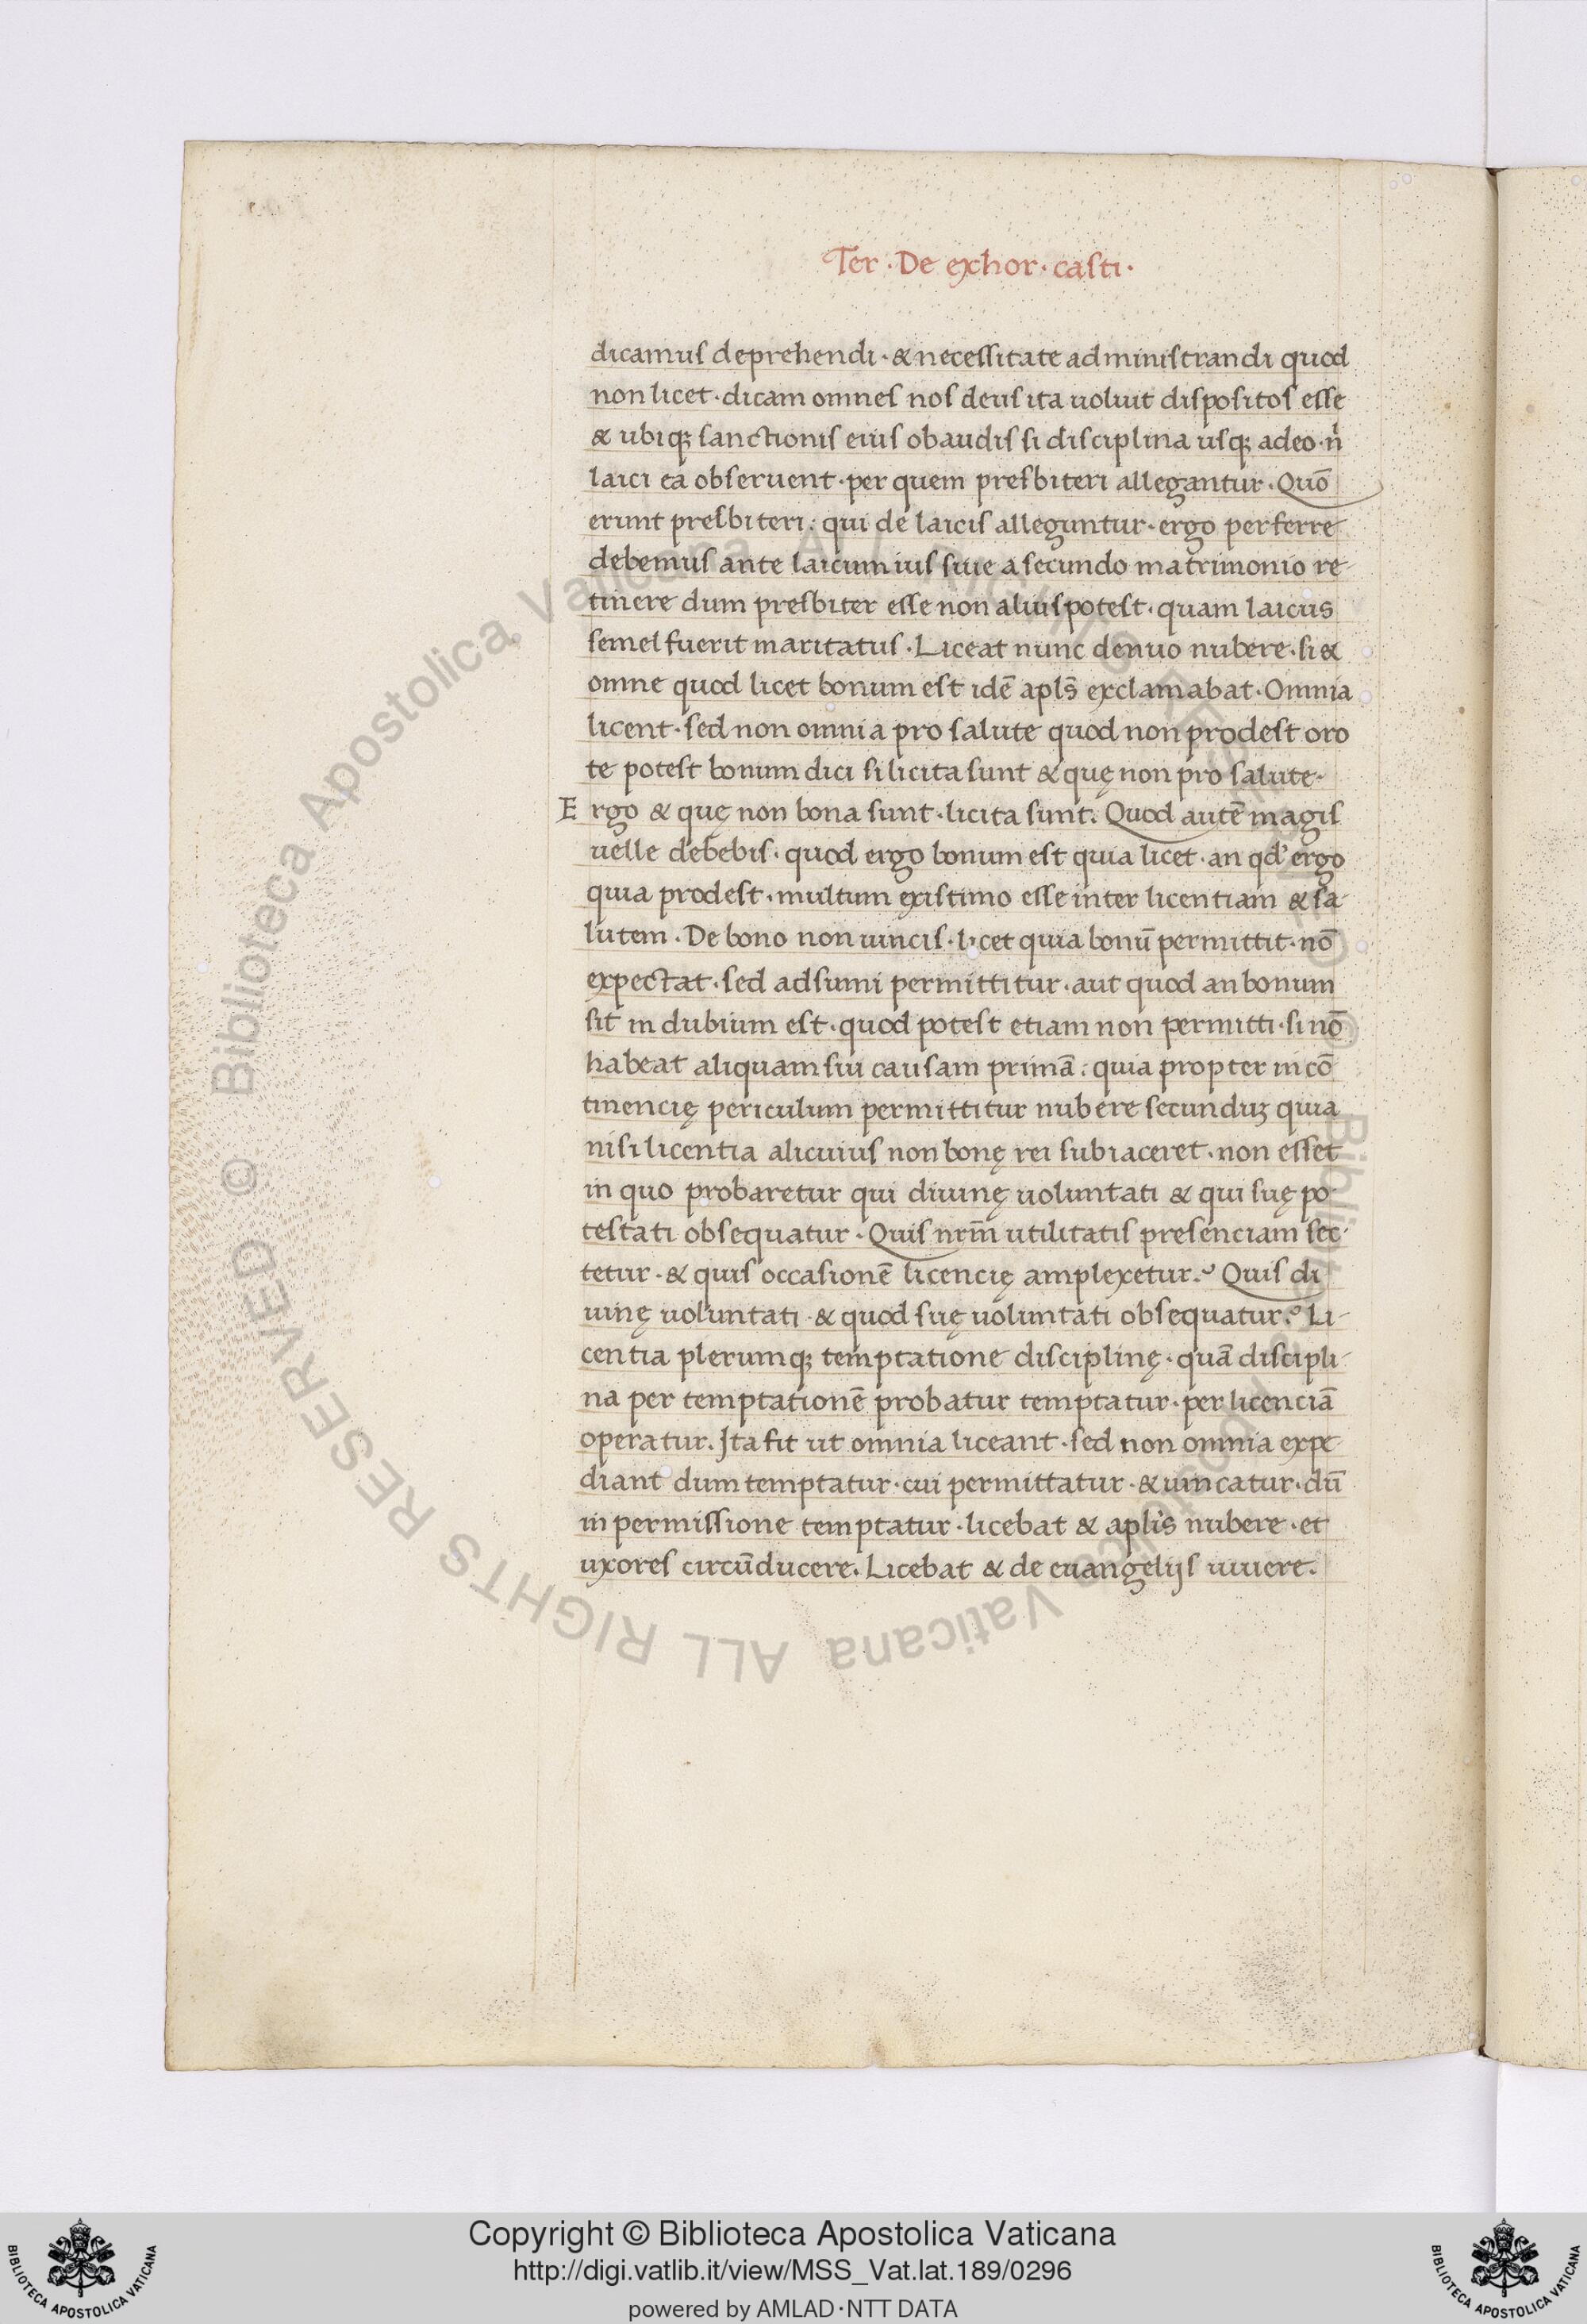 Ter · De exhor · casti ·
dicamus deprehendi · & necessitate administrandi quod
non licet · dicam omnes nos deus ita uoluit dispositos esse
& ubiqꝫ sanctionis eius obaudis si disciplina usqꝫ adeo · n̄
laici ea obseruent · per quem presbiteri allegantur · Quō
erunt presbiteri : qui de laicis alleguntur · ergo perferre
debemus ante laicum ius siue a secundo matrimonio re-
tinere dum presbiter esse non alius potest · quam laicus
semel fuerit maritatus · Liceat nunc denuo nubere · si &
omne quod licet bonum est idē apls̄ exclamabat · Omnia
licent · sed non omnia pro salute quod non prodest oro
te potest bonum dici si licita sunt & quę non pro salute ·
Ergo & quę non bona sunt · licita sunt. Quod autē magis
uelle debebis · quod ergo bonum est quia licet · an qd' ergo
quia prodest · multum existimo esse inter licentiam & sa-
lutem · De bono non uincis · licet quia bonū permittit · nō
expectat · sed adsumi permittitur · aut quod an bonum
sit in dubium est · quod potest etiam non permitti · si nō
habeat aliquam sui causam primā : quia propter incō
tinencię periculum permittitur nubere secunduꝫ quia
nisi licentia alicuius non bonę rei subiaceret · non esset
in quo probaretur qui diuinę uoluntati & qui suę po-
testati obsequatur · Quis nrm̄ utilitatis presenciam sec-
tetur · & quis occasionē licencię amplexetur? Quis di
uinę uoluntati · & quod suę uoluntati obsequatur? Li-
centia plerumqꝫ temptatione disciplinę · quā discipli-
na per temptationē probatur temptatur · per licenciā
operatur. Ita fit ut omnia liceant · sed non omnia expe-
diant dum temptatur · cui permittatur · & uincatur · dū
in permissione temptatur · licebat & aplis nubere · et
uxores circūducere. Licebat & de euangelijs uiuere.
© Biblioteca Apostolica Vaticana ALL RIGHTS RESERVED
Copyright © Biblioteca Apostolica Vaticana
http://digi.vatlib.it/view/MSS_Vat.lat.189/0296
powered by AMLAD·NTT DATA
BIBLIOTECA APOSTOLICA VATICANA
BIBLIOTECA APOSTOLICA VATICANA